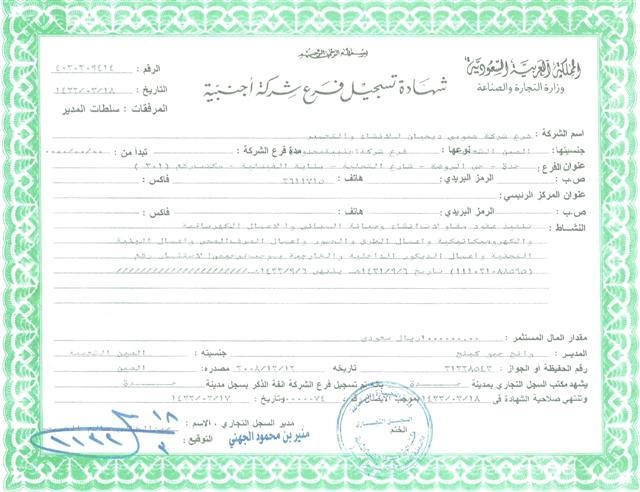 بسم الله الرحمن الرحيم
المملكة العربية السعودية
وزارة التجارة والصناعة
شهادة تسجيل فرع شركة أجنبية
الرقم : ٤٠٣٠٣٠٩٤١٤
التاريخ : ١٤٣٣/٠٣/١٨
المرفقات : سلطات المدير
اسم الشركة : فرع شركة للإنشاء والتعمير
جنسيتها : الصين نوعها : فرع شركة اجنبية مدة فرع الشركة : تبدأ من : ٠٠٠٠/٠٠/٠٠
عنوان الفرع : جدة - حي الروضة - شارع التحلية - بناية - مكتب رقم (٣٠١)
ص.ب : الرمز البريدي : هاتف : ٣٦١١٧١٥ فاكس :
عنوان المركز الرئيسي :
ص.ب : الرمز البريدي : هاتف : فاكس :
النشاط : تنفيذ عقود مقاولات انشاء وصيانة المباني والاعمال الكهربائية
والكهروميكانيكية واعمال الطرق والجسور واعمال الصرف الصحي واعمال البنية
التحتية واعمال الديكور الداخلية والخارجية بموجب ترخيص الاستثمار رقم
(١١١٠٣١٠٨٨٥٦٥) تاريخ ١٤٣١/٩/٦هـ ينتهي ١٤٣٣/٩/٦هـ
مقدار المال المستثمر : ١٠٠٠٠٠٠.٠٠ ريال سعودي
المدير : وانج جنسيته : الصين
رقم الحفيظة أو الجواز : ٣١٣٣٨٥٤٣ تاريخه : ٢٠٠٨/١٢/١٢ مصدره : الصين
يشهد مكتب السجل التجاري بمدينة جدة بأنه تم تسجيل فرع الشركة آنفة الذكر بسجل مدينة جدة
وتنتهي صلاحية الشهادة في ١٤٣٣/٠٣/١٨ بموجب الايصال رقم ٠٠٠٠٠٧٤ وتاريخ : ١٤٣٣/٠٣/١٧
مدير السجل التجاري ، الاسم :
منير بن محمود الجهني
التوقيع :
الختم
السجل التجاري